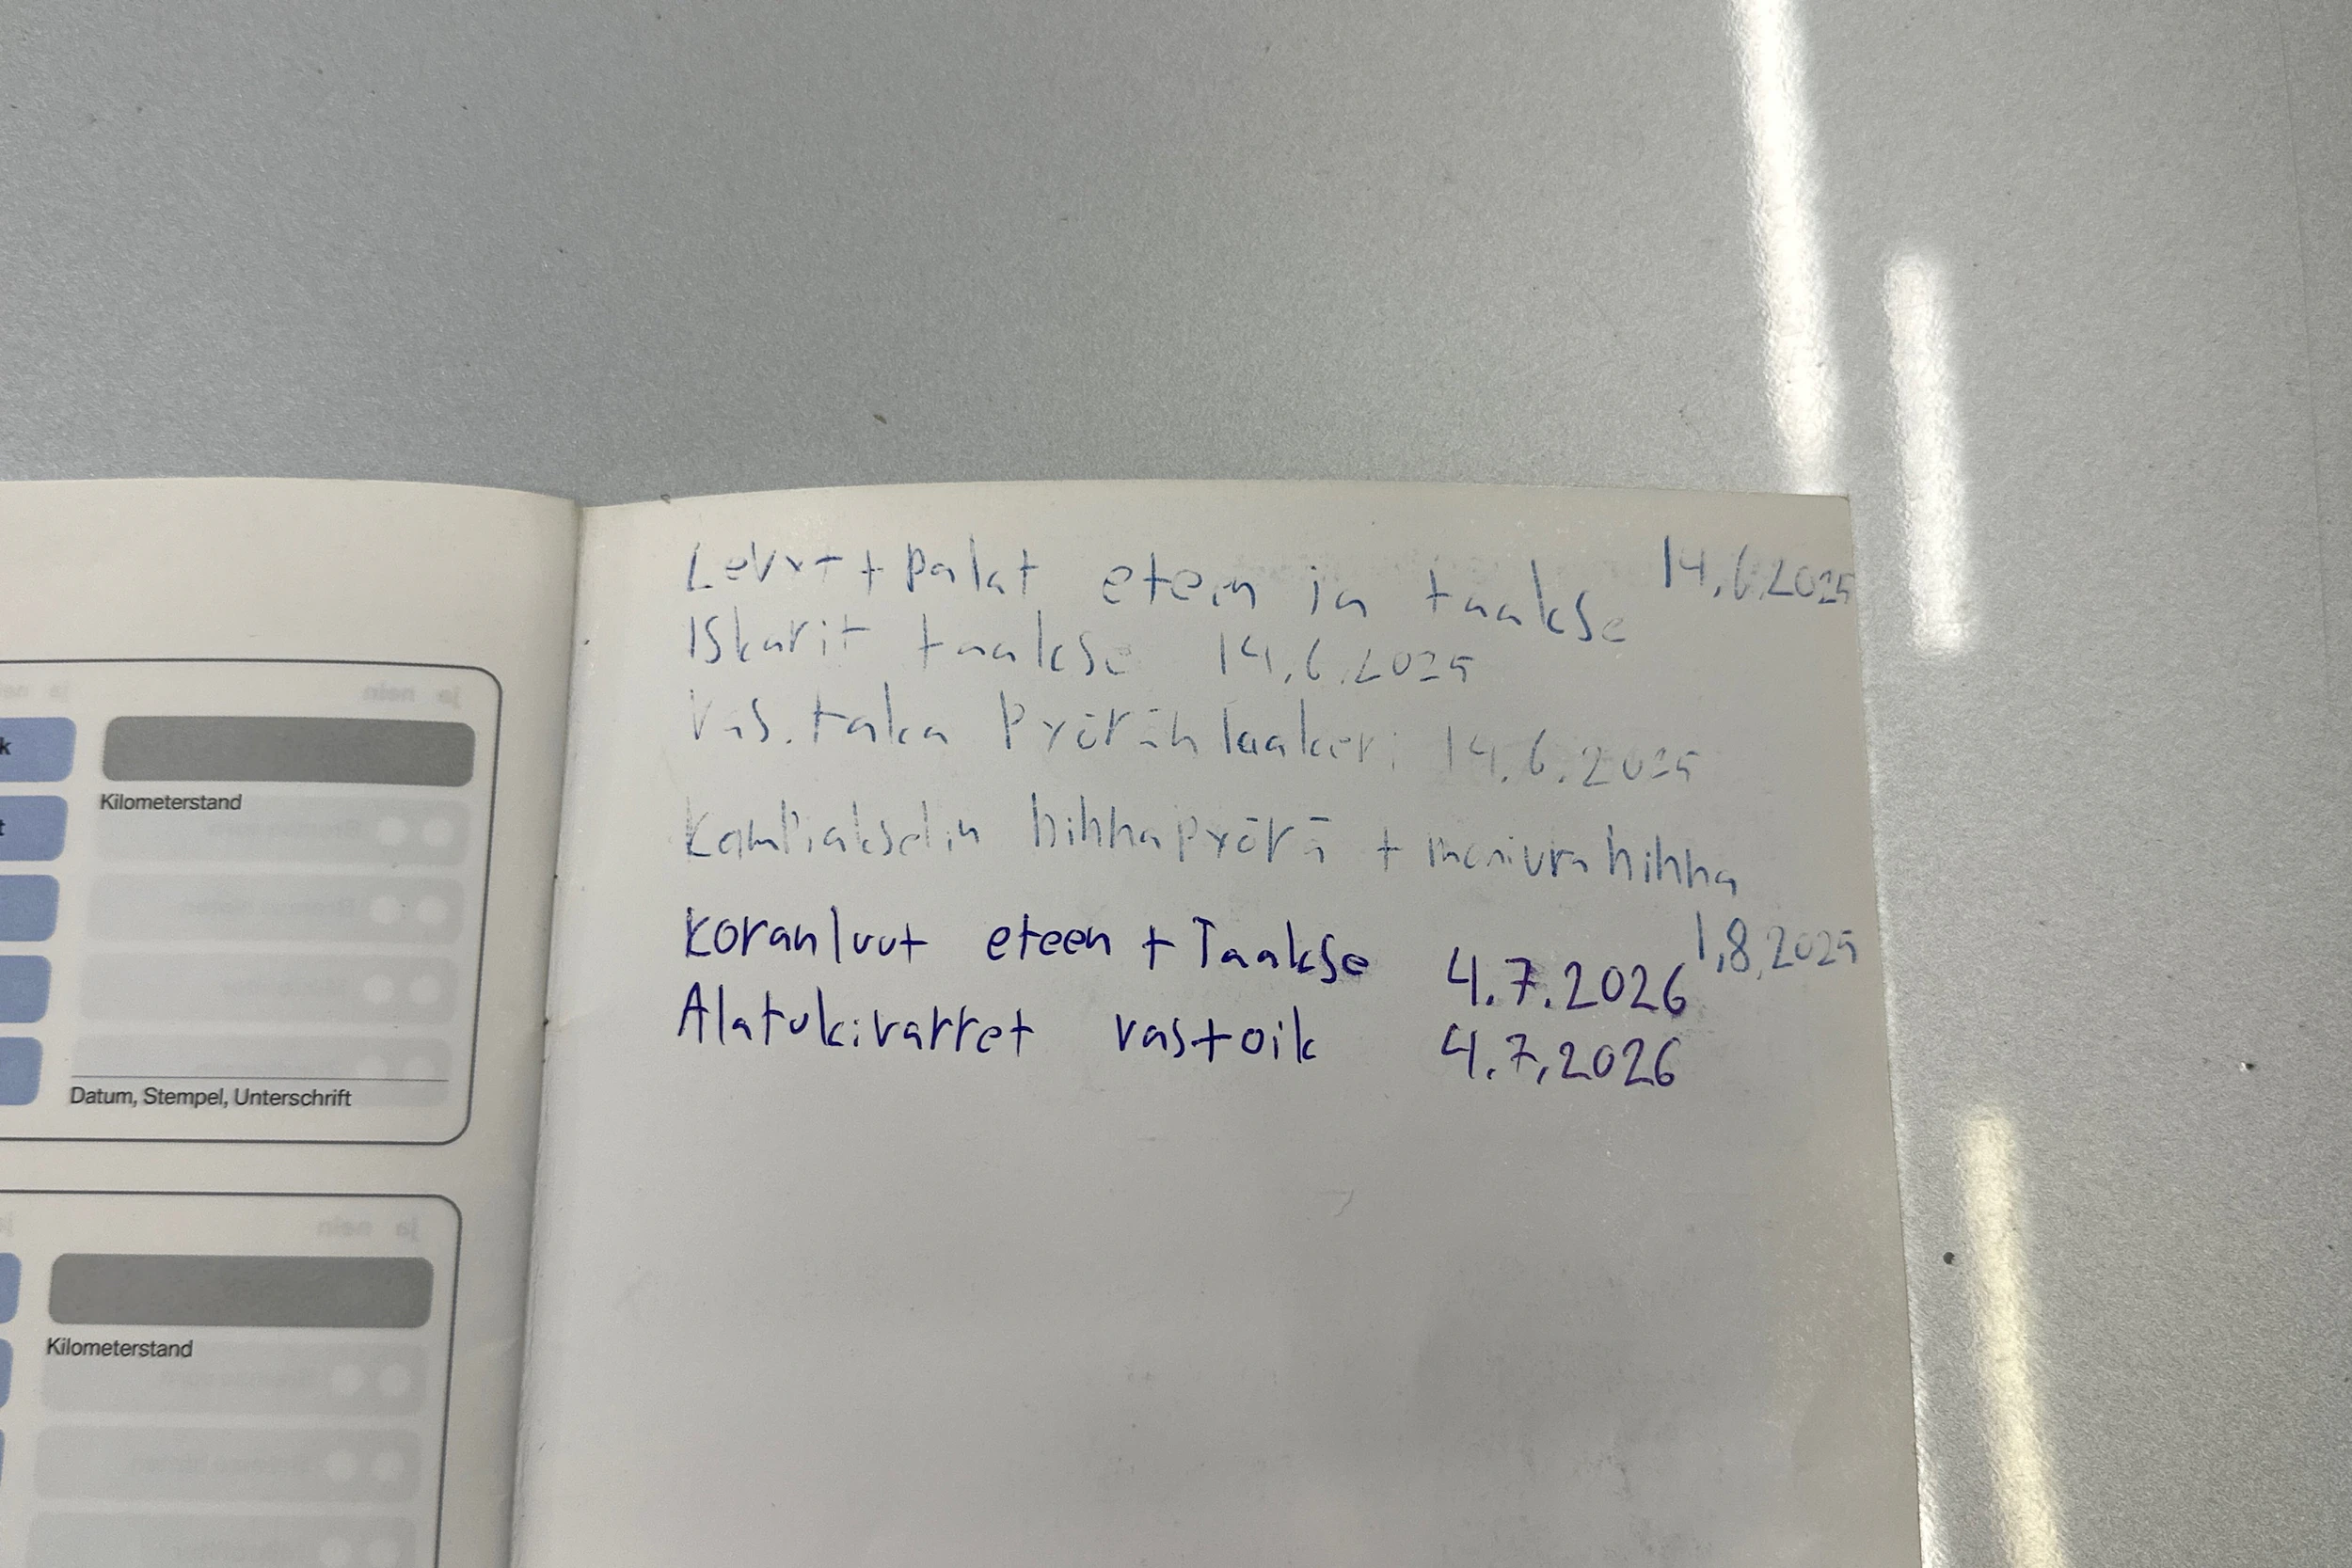 k
t
Kilometerstand
Datum, Stempel, Unterschrift
Kilometerstand
Levyt + palat eteen ja taakse 14.6.2025
Iskarit taakse 14.6.2025
Vas. taka Pyörän laakeri 14.6.2025
Kampiakselin hihnapyörä + moniurahihna
1.8.2025
Koranluut eteen + Taakse 4.7.2026
Alatukivarret vas+oik 4.7.2026